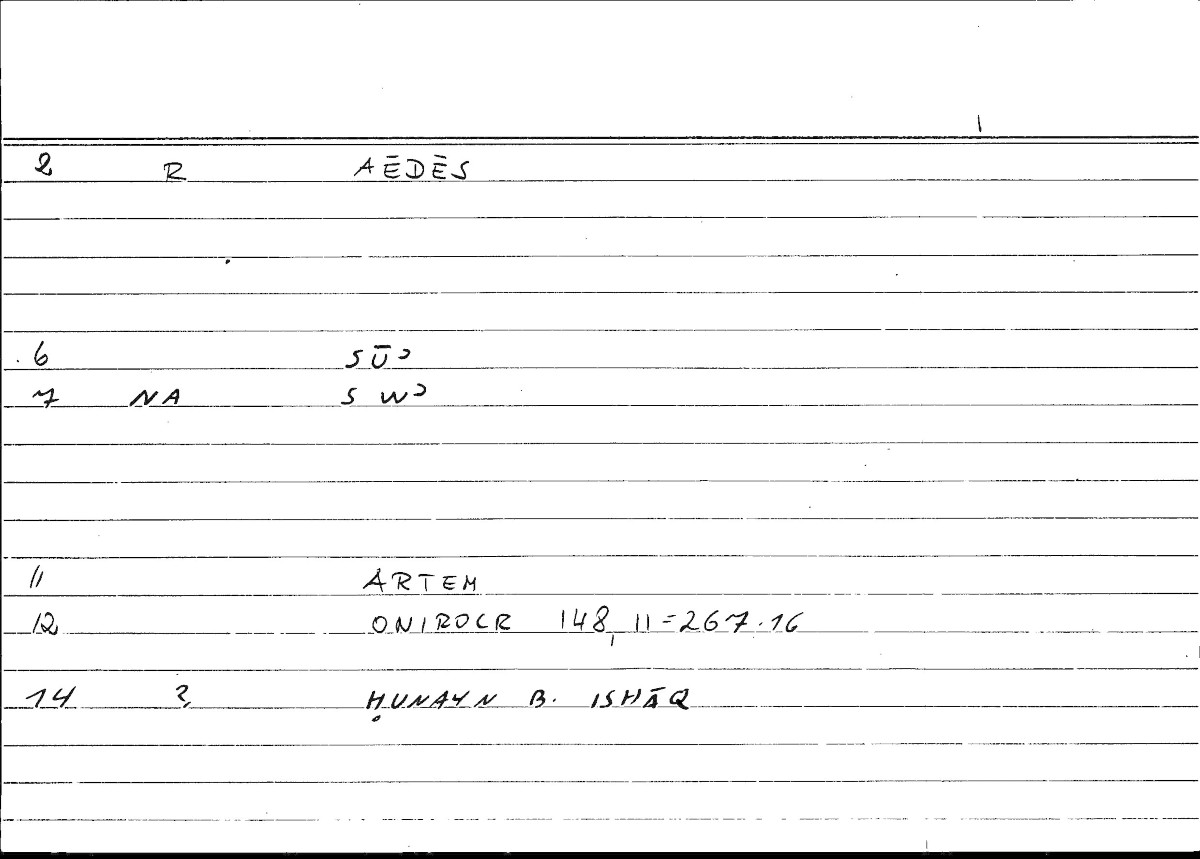 2 R AĒDĒS
6 SŪʾ
7 NA S Wʾ
11 ARTEM
12 ONIROCR 148, 11=267.16
14 ? ḤUNAYN B. ISHĀQ